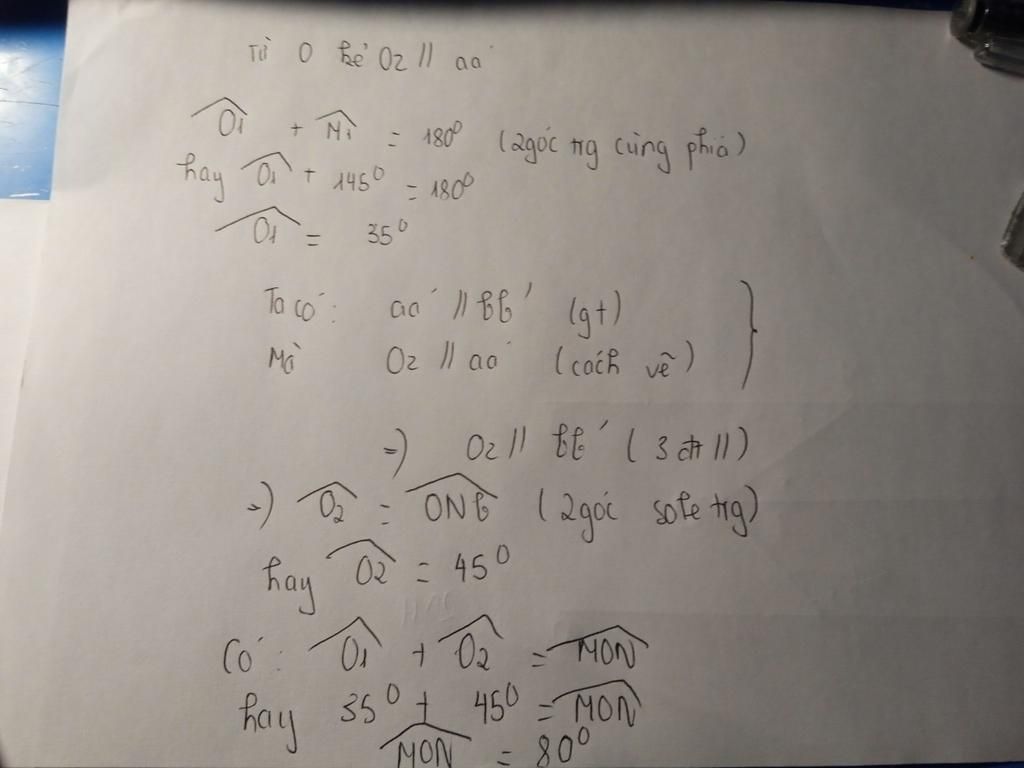 Từ O kẻ Oz // aa'
Ô1 + M̂1 = 180⁰ (2góc trg cùng phía)
hay Ô1 + 145⁰ = 180⁰
Ô1 = 35⁰
Ta có: aa' // bb' (gt)
Mà Oz // aa' (cách vẽ)
=) Oz // bb' (3 đt //)
=) Ô2 = ONb (2góc sole trg)
hay Ô2 = 45⁰
Có: Ô1 + Ô2 = MON
hay 35⁰ + 45⁰ = MON
MON = 80⁰